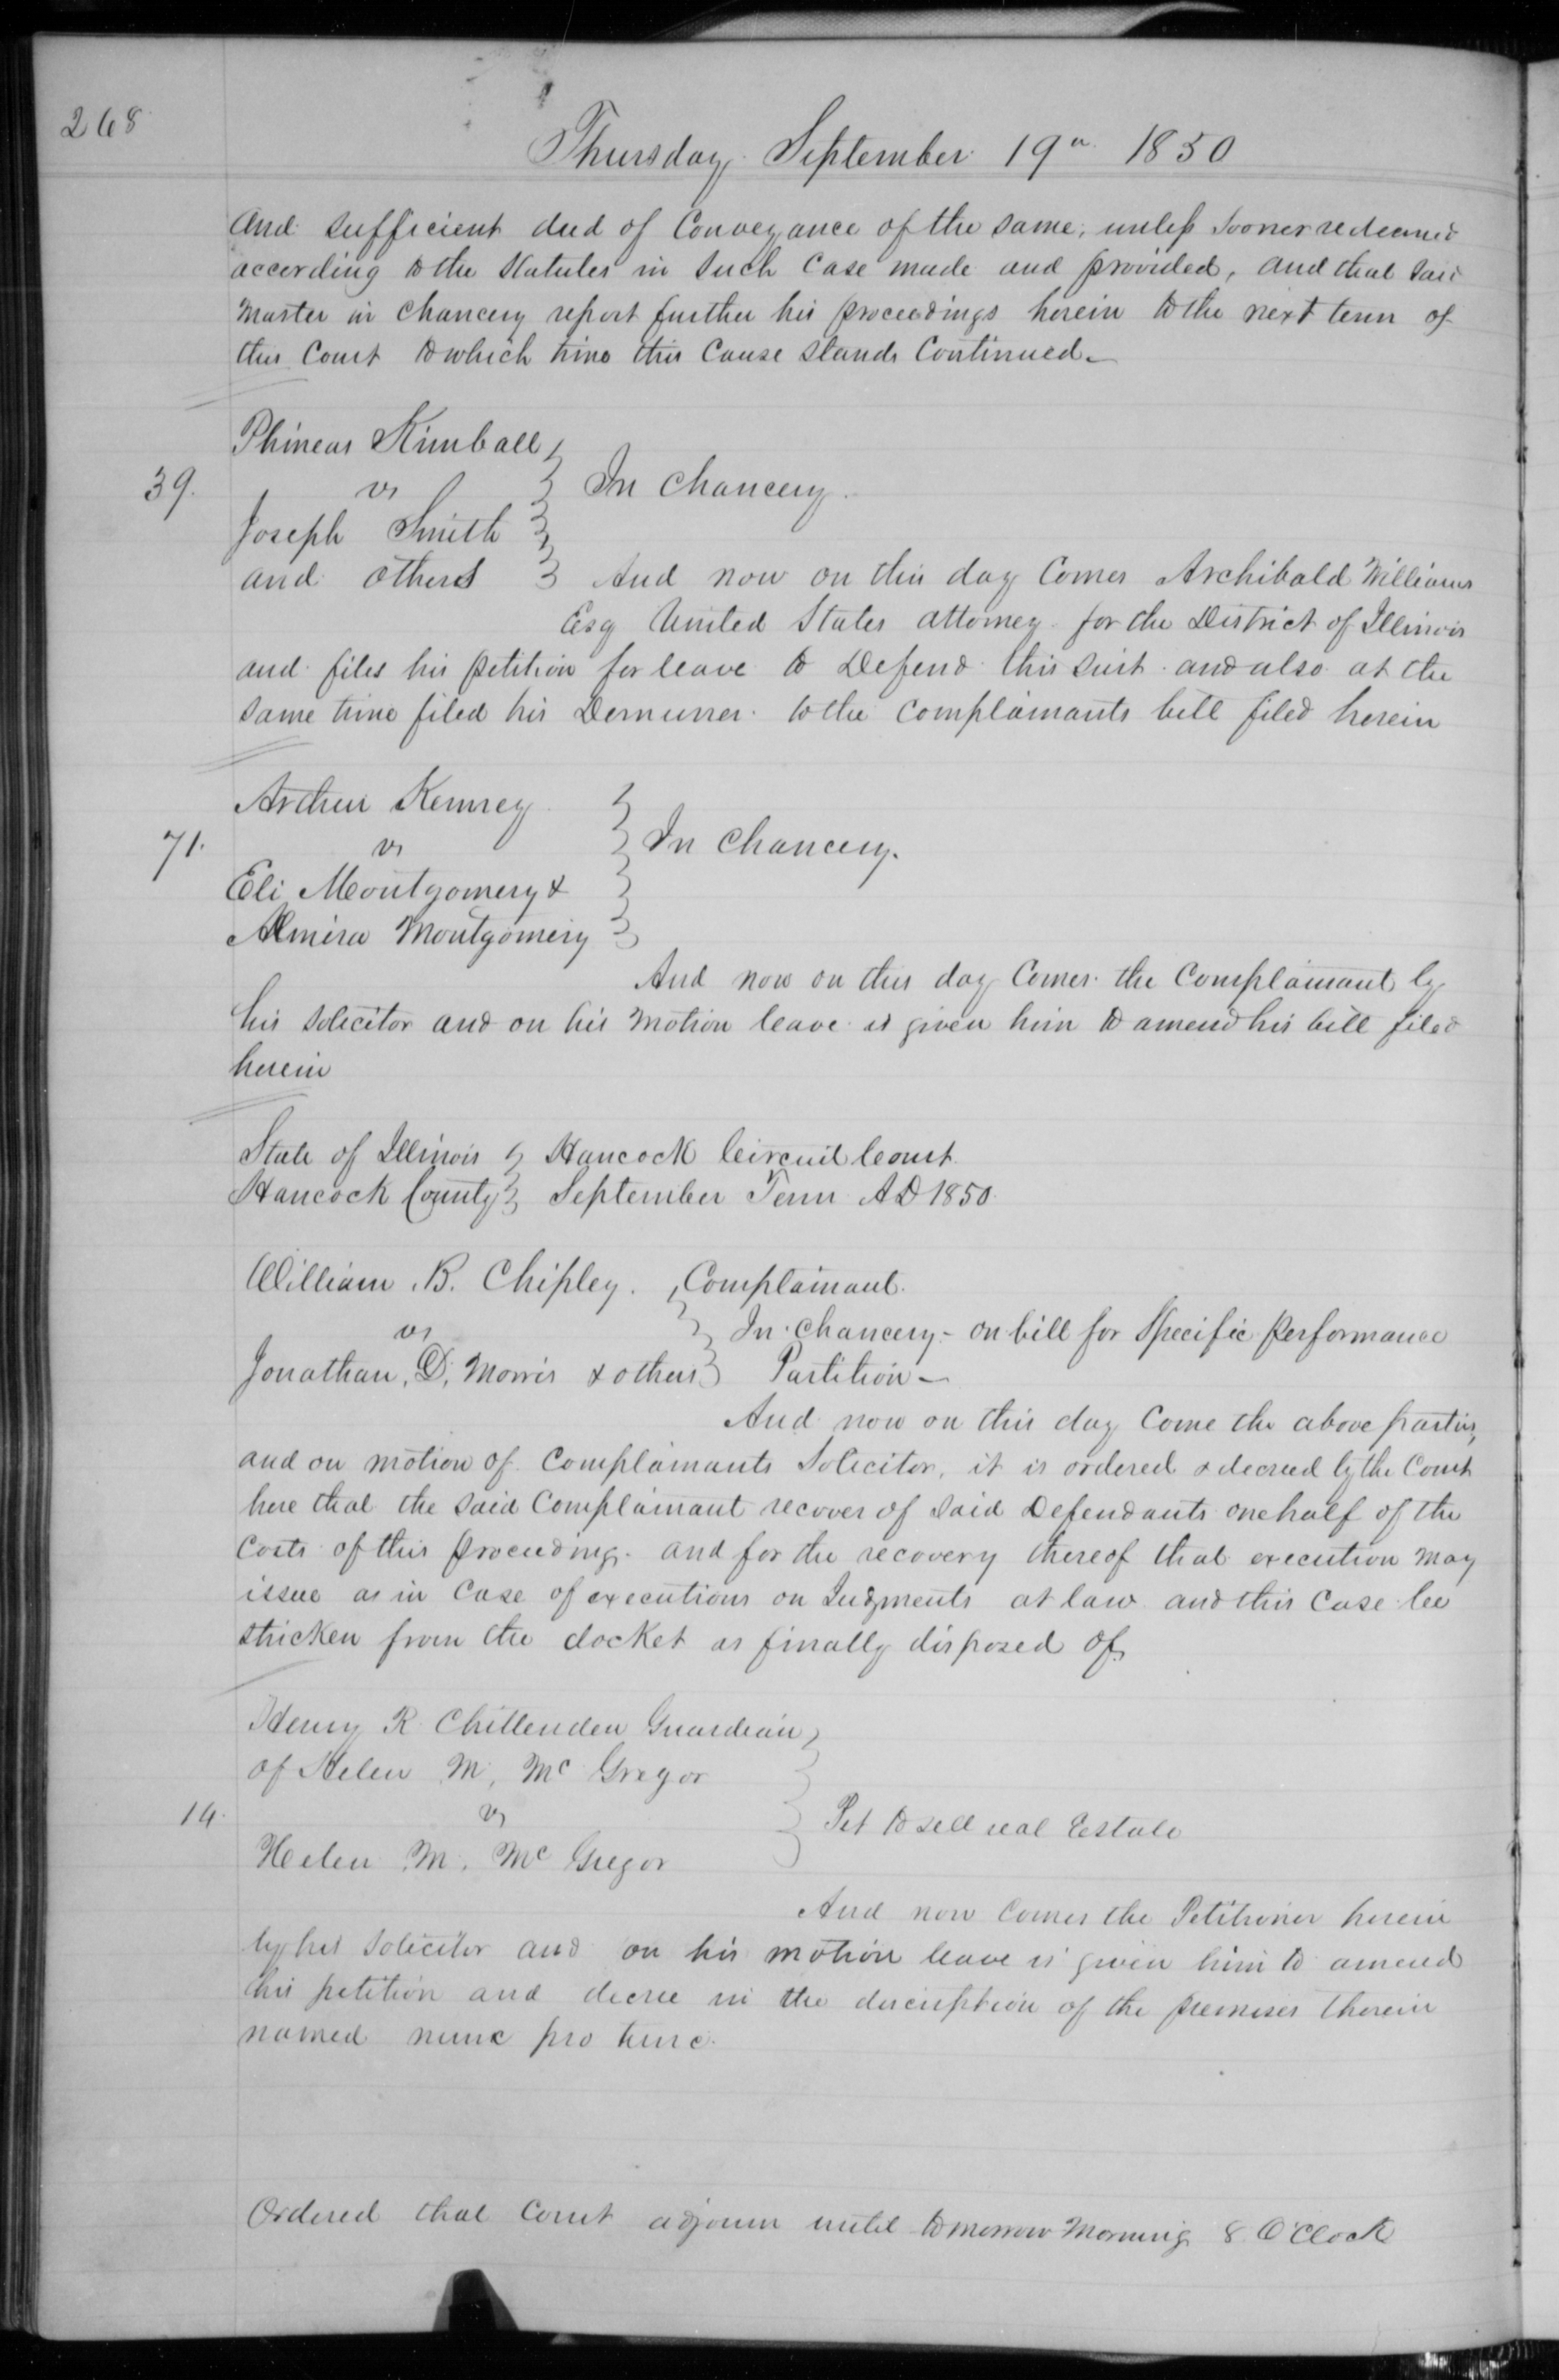 268
Thursday September 19th 1850
And sufficient deed of Conveyance of the same, unless Sooner redeemed
according to the Statutes in Such Case made and provided, and that Said
Master in Chancery report further his proceedings herein to the next term of
this Court to which time this Cause stands Continued_
Phineas Kimball
39. vs In Chancery.
Joseph Smith
and others And now on this day Comes Archibald Williams
Esq United States attorney for the District of Illinois
and files his petition for leave to Defend this suit and also at the
same time filed his Demurrer to the Complainants bill filed herein
Kenney
71. vs In Chancery.
Eli Montgomery &
Almira Montgomery
And now on this day Comes the Complainant by
his solicitor and on his Motion leave is given him to amend his bill filed
herein
State of Illinois Hancock Circuit Court
Hancock County September Term A D 1850
William B. Chipley. Complainant.
vs In Chancery - on bill for Specific performance
Jonathan D. Morris & others Partition -
And now on this day Come the above parties,
and on motion of Complainants Solicitor, it is ordered & decreed by the Court
here that the said Complainant recover of said Defendants one half of the
Costs of this proceeding and for the recovery thereof that execution may
issue as in Case of executions on Judgments at law and this Case be
stricken from the docket as finally disposed of
Henry R Chittenden Guardian
of Helen M, Mc Gregor
14. vs Pet to sell real Estate
Helen M. Mc Gregor
And now Comes the Petitioner herein
by his Solicitor and on his motion leave is given him to amend
his petition and decree in the description of the premises therein
named nunc pro tunc.
Ordered that Court adjourn until tomorrow Morning 8 O'Clock